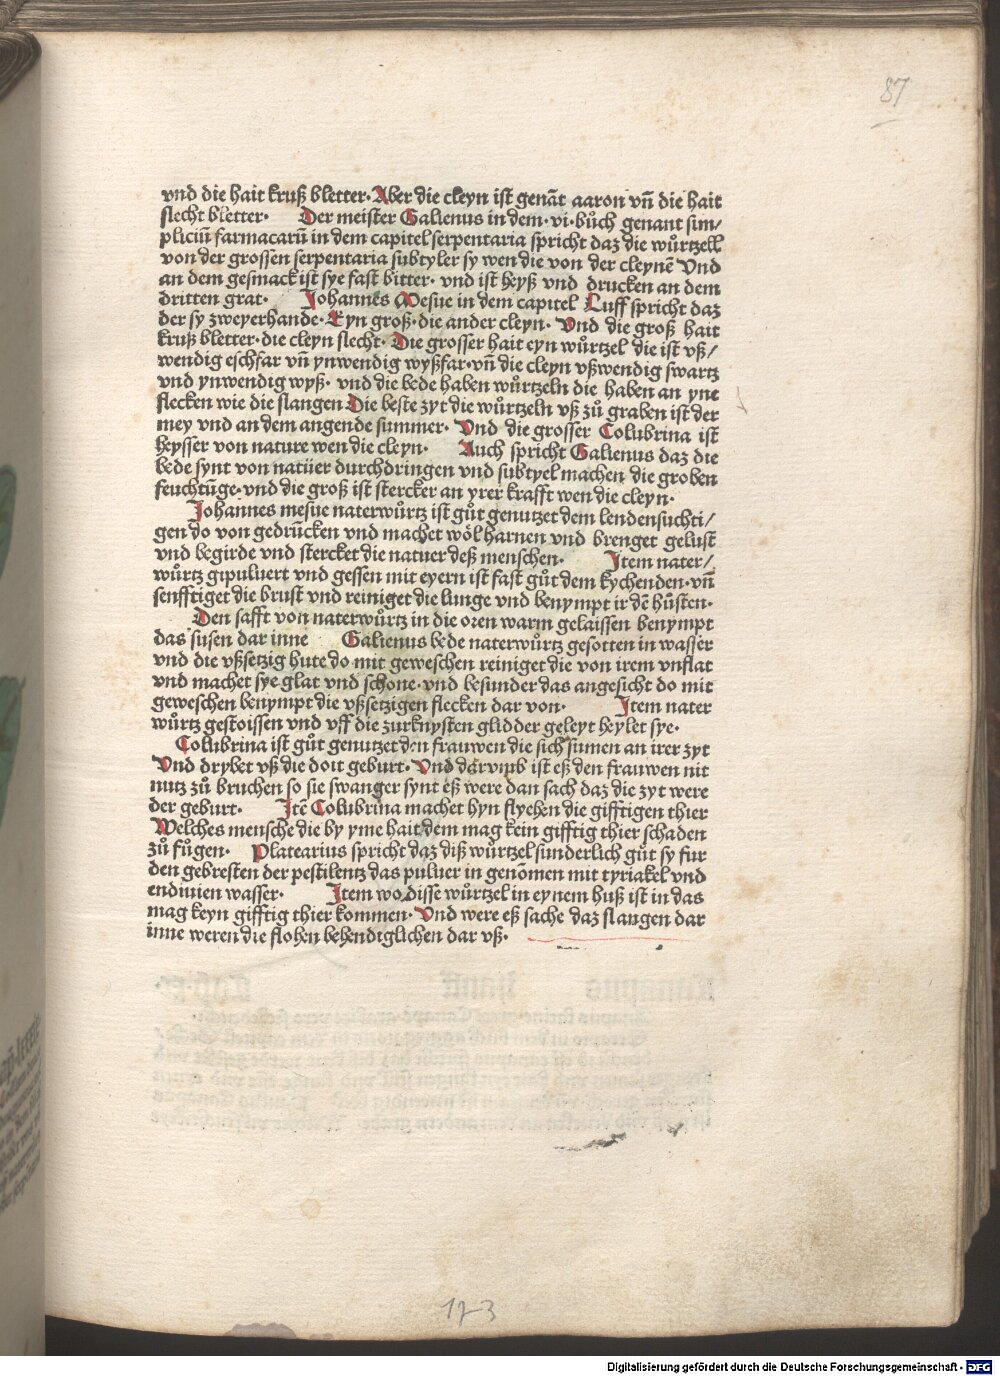 87
vnd die hait kruß bletter· Aber die cleyn ist genāt aaron vn̄ die hait
slecht bletter· Der meister Galienus in dem·vi·bůch genant sim/
pliciū farmacarū in dem capitel serpentaria spricht daz die wůrtzell
von der grossen serpentaria subtyler sy wen die von der cleynē Vnd
an dem gesmack ist sye fast bitter· vnd ist heyß vnd drucken an dem
dritten grat· Johannes Mesue in dem capitel Luff spricht daz
der sy zweyerhande· Eyn groß·die ander cleyn· Vnd die groß hait
kruß bletter·die cleyn slecht· Die grosser hait eyn wůrtzel die ist vß/
wendig eschfar vn̄ ynwendig wyßfar·vn̄ die cleyn vßwendig swartz
vnd ynwendig wyß· vnd die bede haben wůrtzeln die haben an yne
flecken wie die slangen Die beste zyt die wůrtzeln vß zů graben ist der
mey vnd an dem angende summer· Vnd die grosser Colubrina ist
heysser von nature wen die cleyn· Auch spricht Galienus daz die
bede synt von natüer durchdringen vnd subtyel machen die groben
feuchtūge·vnd die groß ist stercker an yrer krafft wen die cleyn·
Johannes mesue naterwůrtz ist gůt genutzet dem lendensuchti/
gen do von gedrücken vnd machet wöl harnen vnd brenget gelust
vnd begirde vnd stercket die natuer deß menschen· Item nater/
wůrtz gipuluert vnd gessen mit eyern ist fast gůt dem kychenden·vn̄
senfftiget die brust vnd reiniget die lunge vnd benympt ir dē hůsten·
Den safft von naterwůrtz in die oren warm gelaissen benympt
das susen dar inne Galienus bede naterwůrtz gesotten in wasser
vnd die vßsetzig hute do mit geweschen reiniget die von irem vnflat
vnd machet sye glat vnd schone·vnd besunder das angesicht do mit
geweschen benympt die vßsetzigen flecken dar von· Item nater
wůrtz gestoissen vnd vff die zurknysten glidder geleyt heylet sye·
Colubrina ist gůt genutzet den frauwen die sich sumen an irer zyt
Vnd drybet vß die doit geburt· Vnd darvmb ist eß den frauwen nit
nutz zů bruchen so sie swanger synt eß were dan sach daz die zyt were
der geburt· Itē Colubrina machet hyn flyehen die gifftigen thier
Welches mensche die by yme hait dem mag kein gifftig thier schaden
zů fůgen· Platearius spricht daz diß wůrtzel sunderlich gůt sy fur
den gebresten der pestilentz das puluer in genomen mit tyriakel vnd
endiuien wasser· Item wo disse wůrtzel in eynem huß ist in das
mag keyn gifftig thier kommen· Vnd were eß sache daz slangen dar
inne weren die flohen behendiglichen dar vß·
173
Digitalisierung gefördert durch die Deutsche Forschungsgemeinschaft - DFG